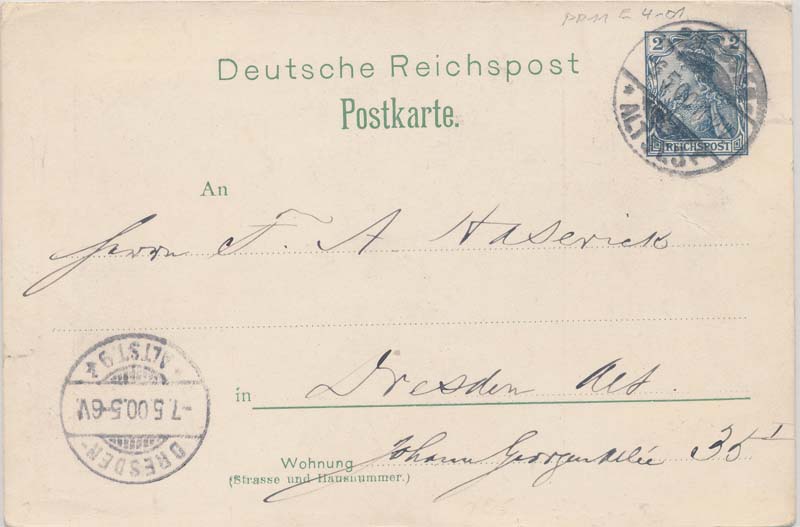 PPM E 4-01
Deutsche Reichspost
Postkarte.
2 2
REICHSPOST
* ALTST.
An
Herrn F. A. Haserick
in Dresden Alt.
Wohnung Johann Georgenallée 35 I
(Strasse und Hausnummer.)
* ALTST.9 *
-7.5.00.5-6V.
DRESDEN-